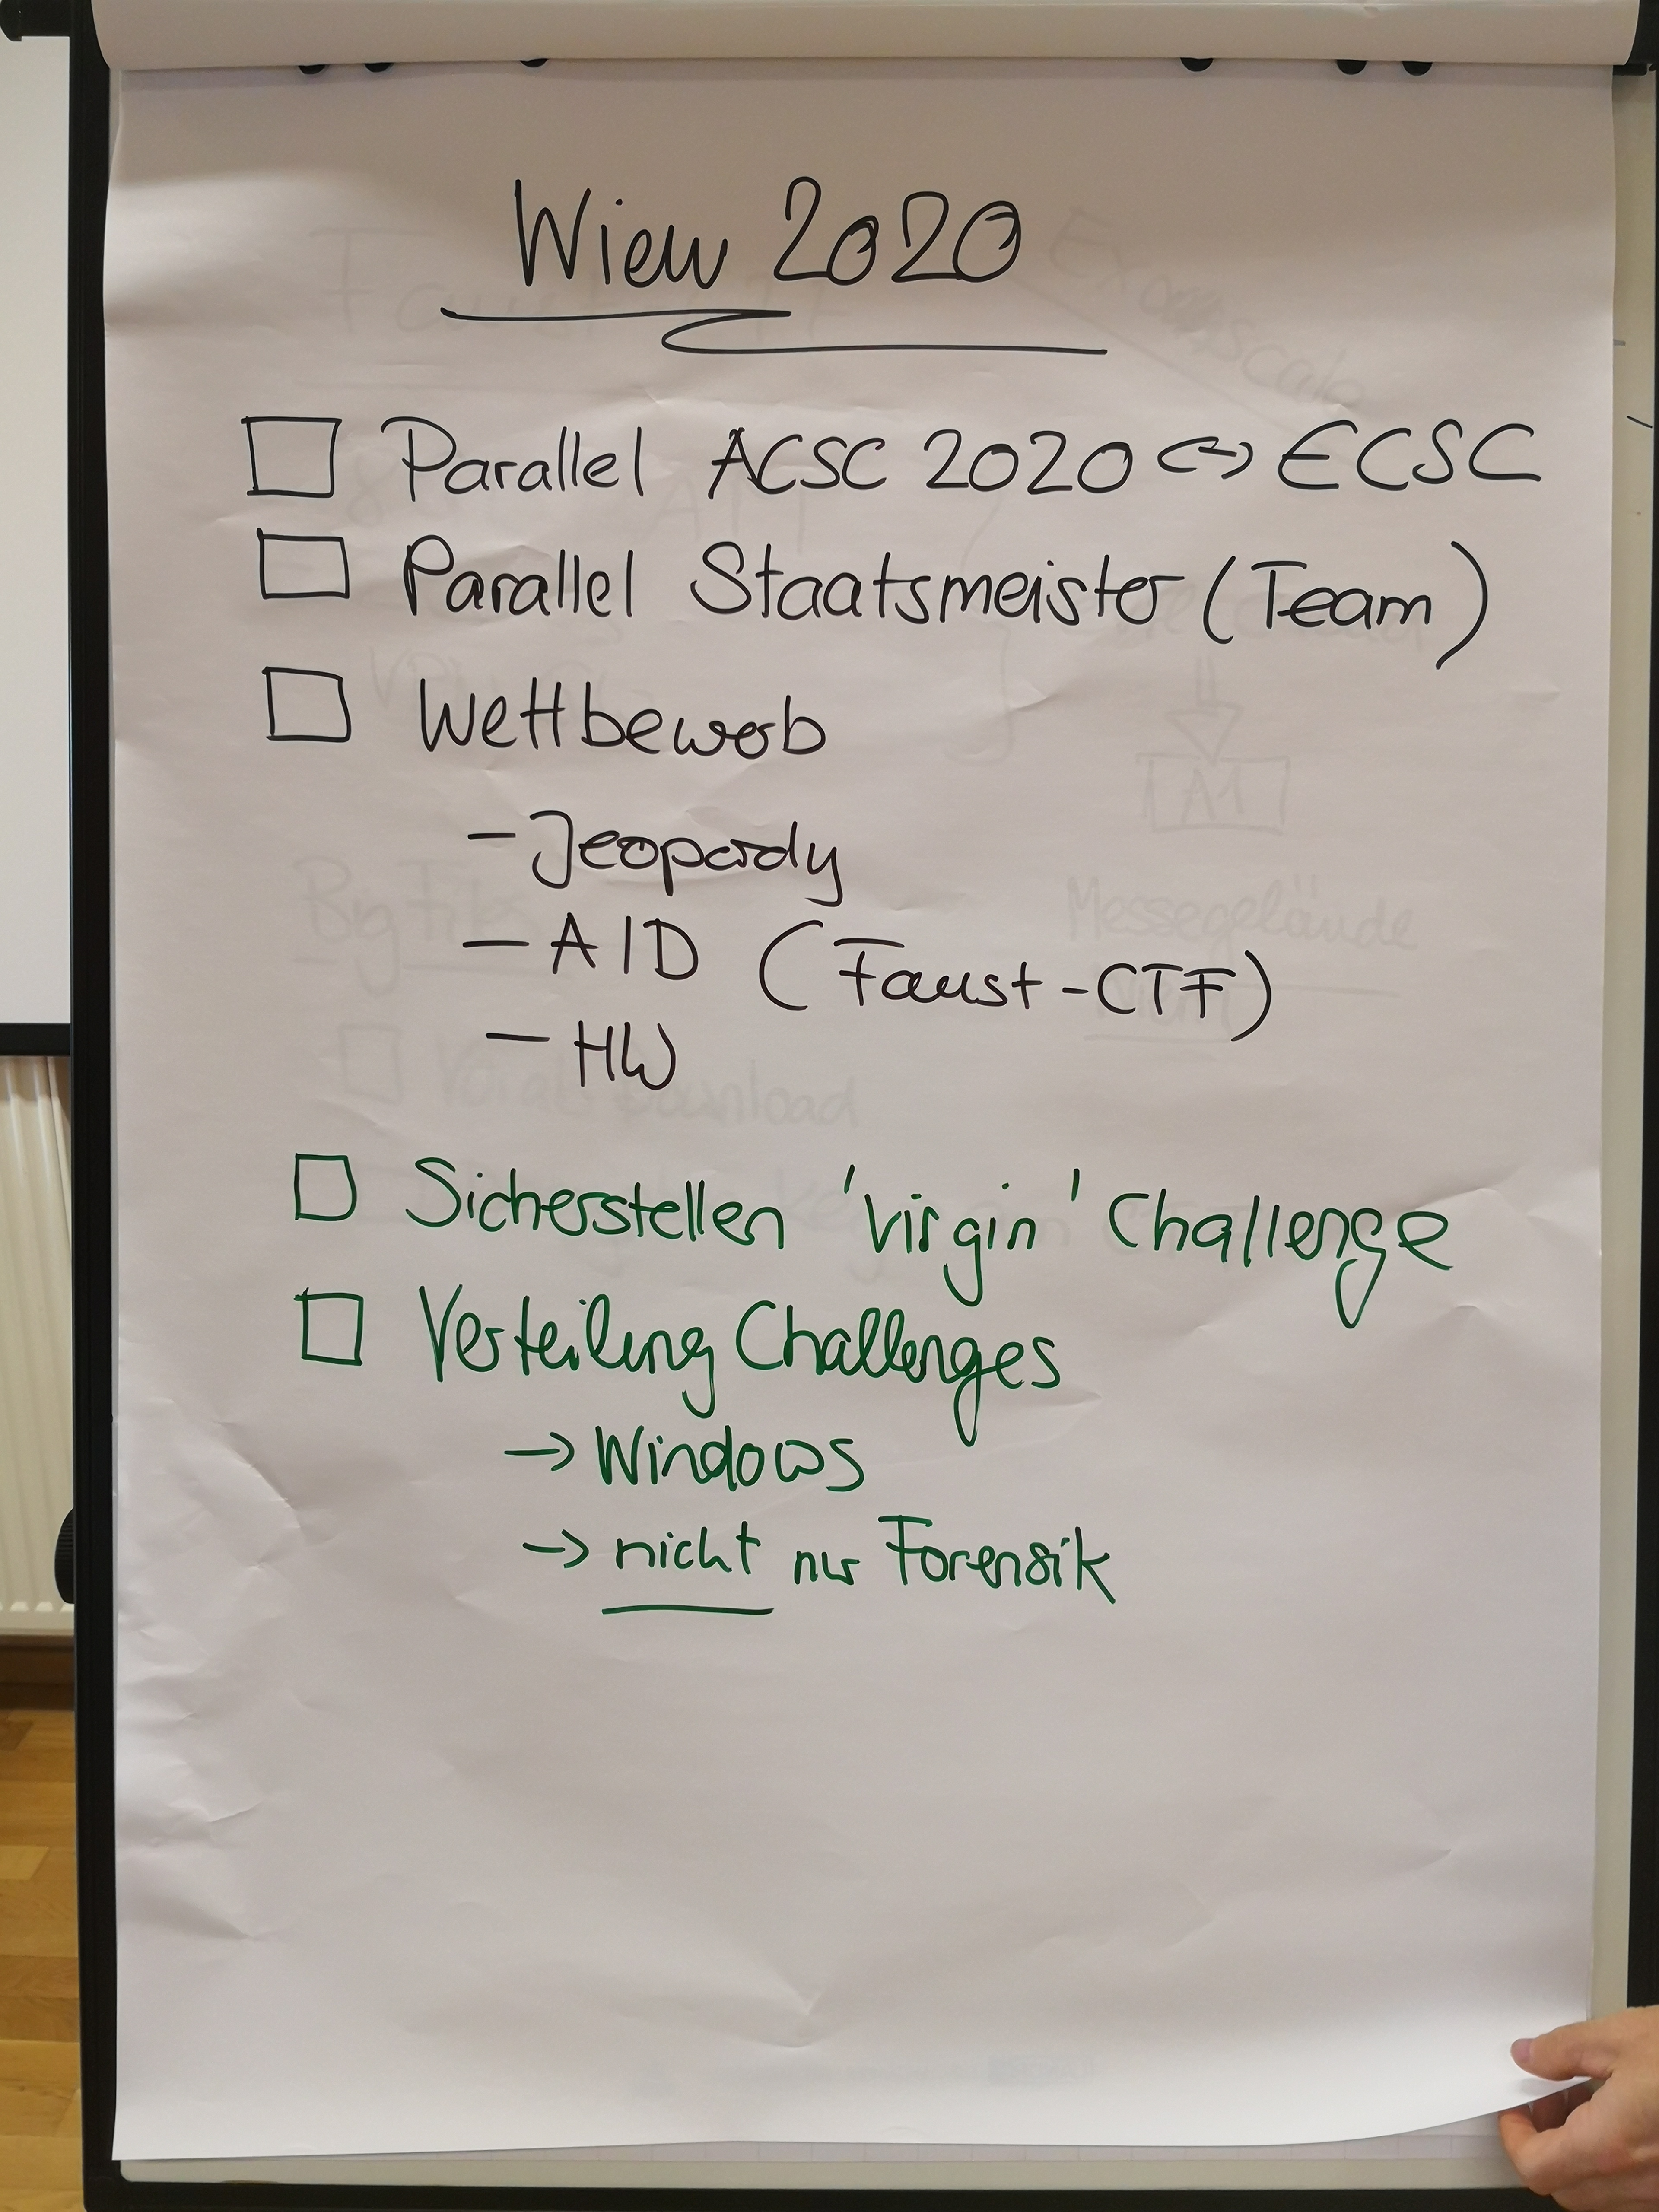 Wien 2020
Parallel ACSC 2020 <-> ECSC
Parallel Staatsmeister (Team)
Wettbewerb
- Jeopardy
- A/D (Faust-CTF)
- HW
Sicherstellen 'virgin' Challenge
Verteilung Challenges
-> Windows
-> nicht nur Forensik
Messegelände
A1